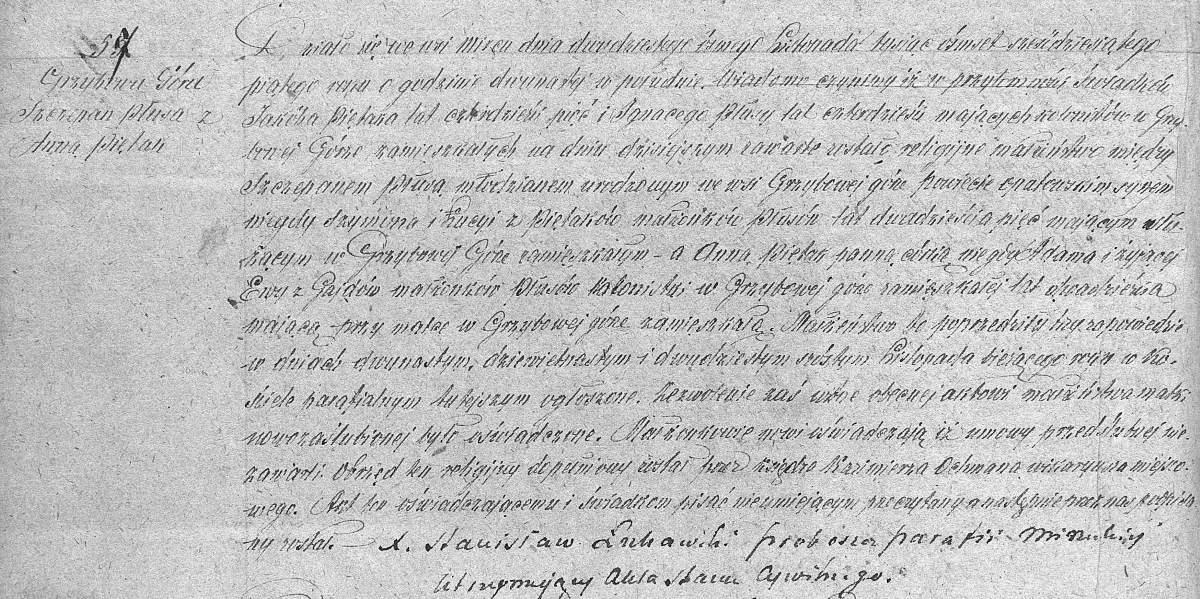 59
Grzybowa Góra
Szczepan Płusa z
Anną Piętak
Działo się we wsi Mircu dnia dwudziestego ósmego Listopada tysiąc ósmset sześćdziesiątego
piątego roku o godzinie dwunastej w południe. Wiadomo czynimy iż w przytomności świadków
Jakóba Piętaka lat czterdzieści pięć i Ignacego Płusy lat czterdzieści mających kolonistów w Grzy
bowej Górze zamieszkałych na dniu dzisiejszym zawarte zostało religijne małżeństwo między
Szczepanem Płusą młodzianem urodzonym we wsi Grzybowej górze powiecie opatowskim synem
niegdy Szymona i Łucyi z Piętaków małżonków Płusów lat dwadzieścia pięć mającym słu
żącym w Grzybowej Górze zamieszkałym – a Anną Piętak panną córką niegdy Adama i żyjącej
Ewy z Gajdów małżonków Płusów kolonistki w Grzybowej górze zamieszkałej lat dwadzieścia
mającą przy matce w Grzybowej górze zamieszkałą. Małżeństwo to poprzedziły trzy zapowiedzie
w dniach dwunastym, dziewietnastym i dwudziestym szóstym Listopada bieżącego roku w Ko-
ściele parafialnym tutejszym ogłoszone. Zezwolenie zaś ustne obecnej aktowi małżeństwa matki
nowozaślubionej było oświadczone. Małżonkowie nowi oświadczają iż umowy przedślubnej nie
zawarli. Obrzęd ten religijny dopełniony został przez księdza Kazimierza Ochmana wikaryusza miejsco-
wego. Akt ten oświadczającemu i świadkom pisać nieumiejącym przeczytany a następnie przez nas podpisa
ny został. – X. Stanisław Żukawski proboszcz parafii Mirzeckiej
Utrzymujący Akta Stanu Cywilnego.